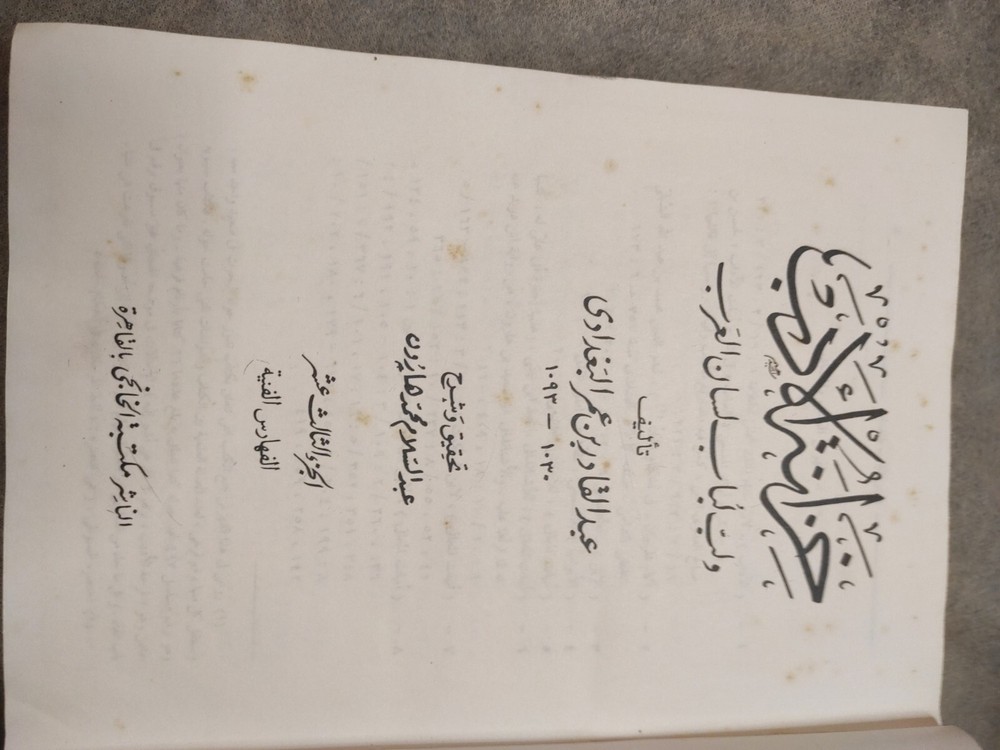 خزانة الأدب
ولب لباب لسان العرب
تأليف
عبد القادر بن عمر البغدادى
١٠٣٠ – ١٠٩٣
تحقيق وشرح
عبد السلام محمد هارون
الجزء الثالث عشر
(الفهارس الفنية)
الناشر مكتبة الخانجى بالقاهرة